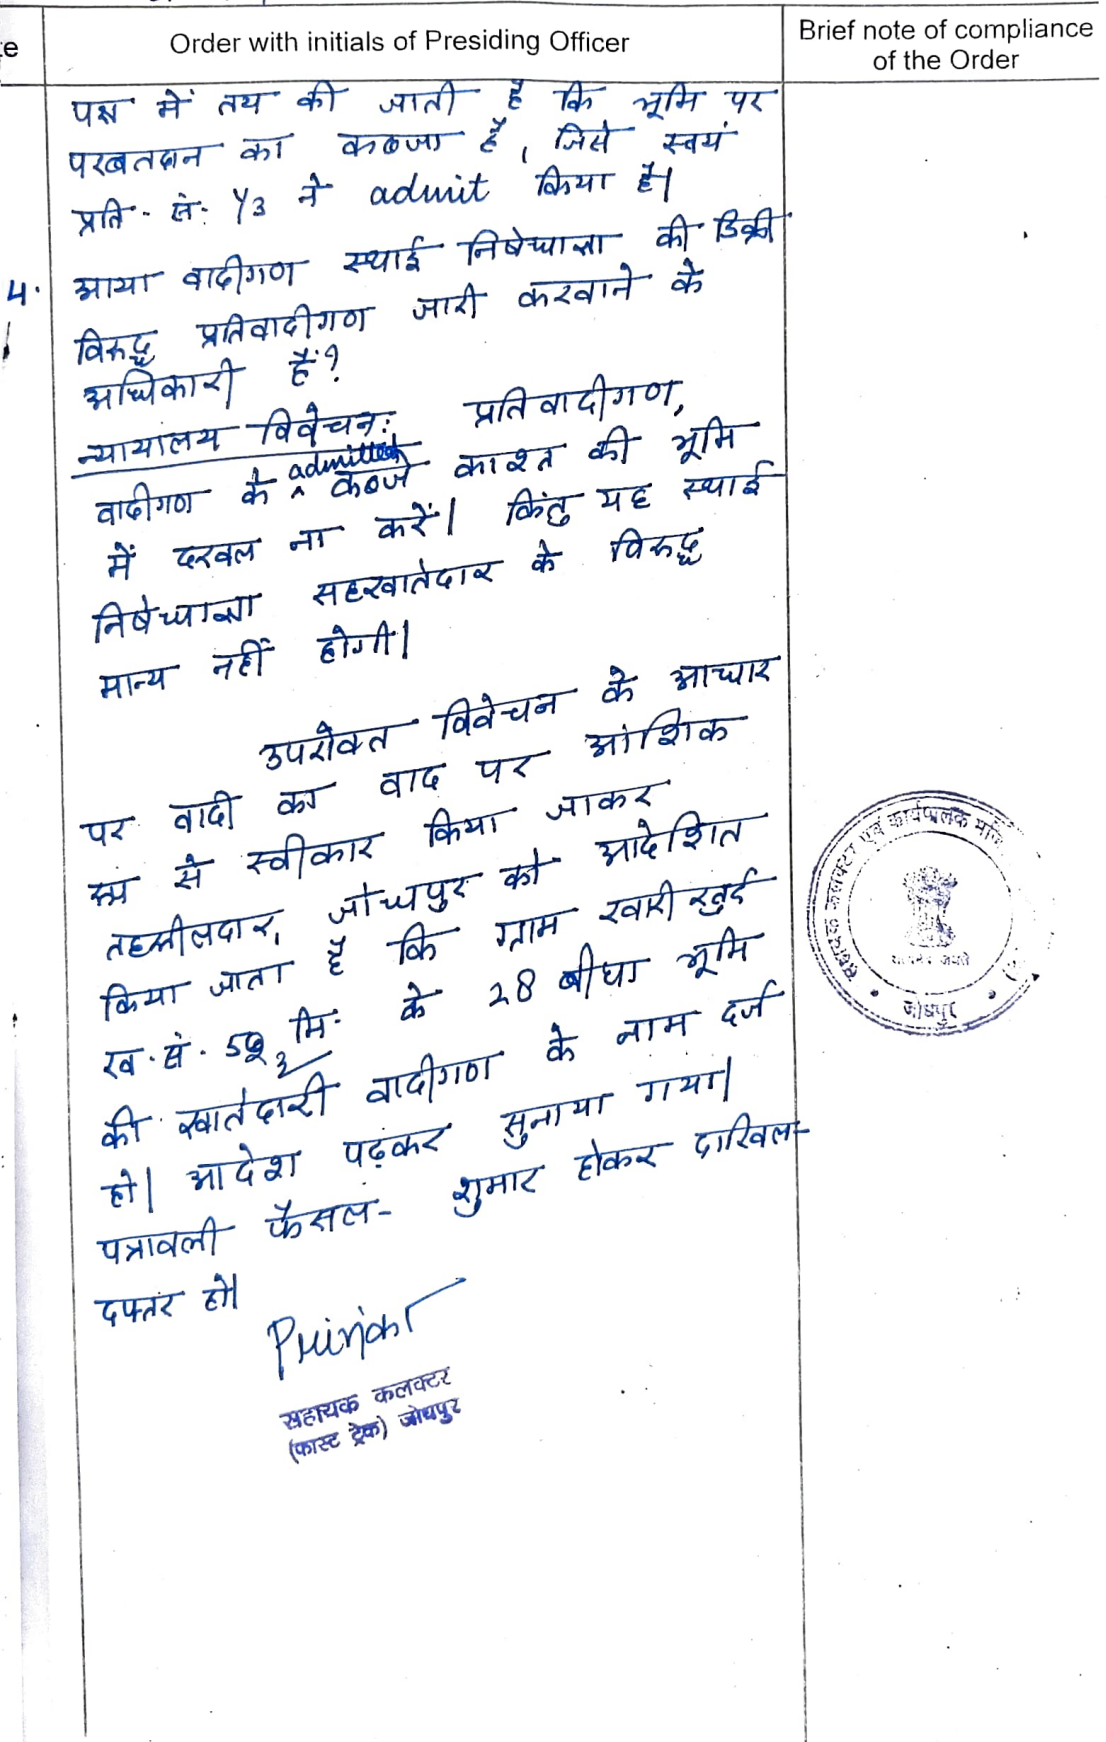 te
Order with initials of Presiding Officer
Brief note of compliance
of the Order
पक्ष में तय की जाती है कि भूमि पर
परबतदान का कब्जा है, जिसे स्वयं
प्रति. सं. 1/3 ने admit किया है।
4. आया वादीगण स्थाई निषेधाज्ञा की डिक्री
विरुद्ध प्रतिवादीगण जारी करवाने के
अधिकारी हैं?
न्यायालय विवेचन: प्रतिवादीगण,
वादीगण के admitted कब्जे काश्त की भूमि
में दखल ना करें। किंतु यह स्थाई
निषेधाज्ञा सहखातेदार के विरुद्ध
मान्य नहीं होगी।
उपरोक्त विवेचन के आधार
पर वादी का वाद पर आंशिक
रूप से स्वीकार किया जाकर
तहसीलदार, जोधपुर को आदेशित
किया जाता है कि ग्राम खारी खुर्द
ख. सं. मि. के 28 बीघा भूमि
की खातेदारी वादीगण के नाम दर्ज
हो। आदेश पढ़कर सुनाया गया।
पत्रावली फैसल- शुमार होकर दाखिल-
दफ्तर हो।
सहायक कलक्टर
(फास्ट ट्रेक) जोधपुर
सहायक कलक्टर एवं कार्यपालक मजि
सत्यमेव जयते
जोधपुर